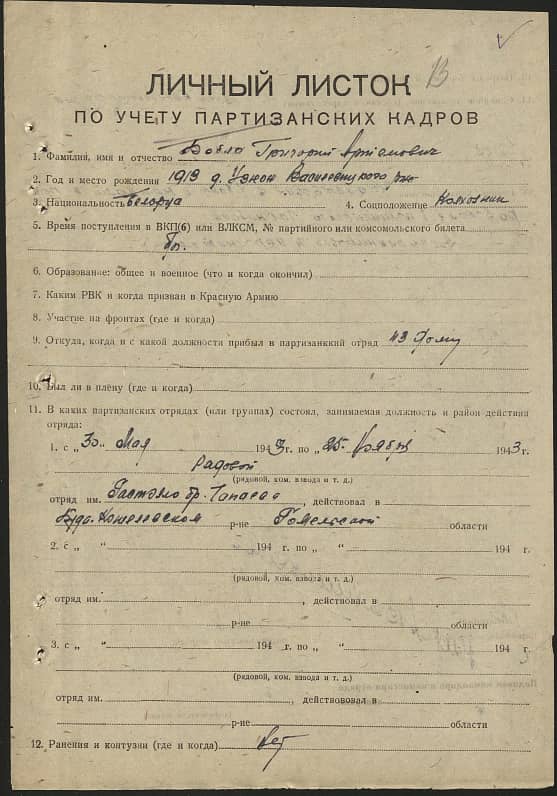 ЛИЧНЫЙ ЛИСТОК
ПО УЧЕТУ ПАРТИЗАНСКИХ КАДРОВ
1. Фамилия, имя и отчество Бобло Григорий Артемович
2. Год и место рождения 1913 д. Узнож Василевицкого
3. Национальность Белорус 4. Соцположение Колхозник
5. Время поступления в ВКП(б) или ВЛКСМ, № партийного или комсомольского билета
6. Образование: общее и военное (что и когда окончил)
7. Каким РВК и когда призван в Красную Армию
8. Участие на фронтах (где и когда)
9. Откуда, когда и с какой должности прибыл в партизанккий отряд из дому
10. Был ли в плену (где и когда)
11. В каких партизанских отрядах (или группах) состоял, занимаемая должность и район действия
отряда:
1. с „30“ Мая 1943 г. по „25“ Ноября 1943 г.
Рядовой
(рядовой, ком. взвода и т. д.)
отряд им. Гастэло бр. Чапаева, действовал в
Буда-Кошелевском р-не Гомельской области
2. с „ “ 194 г. по „ “ 194 г.
(рядовой, ком. взвода и т. д.)
отряд им. , действовал в
р-не области
3. с „ “ 194 г. по „ “ 194 г.
(рядовой, ком. взвода и т. д.)
отряд им. , действовал в
р-не области
12. Ранения и контузии (где и когда) Нет